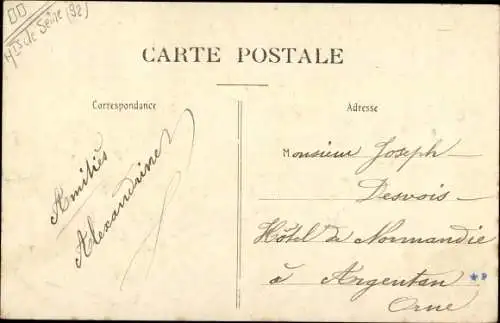 Hts de Seine (92)
CARTE POSTALE
Correspondance
Adresse
Amitiés
Alexandrine
Monsieur Joseph
Desvois
Hôtel de Normandie
à Argentan
Orne